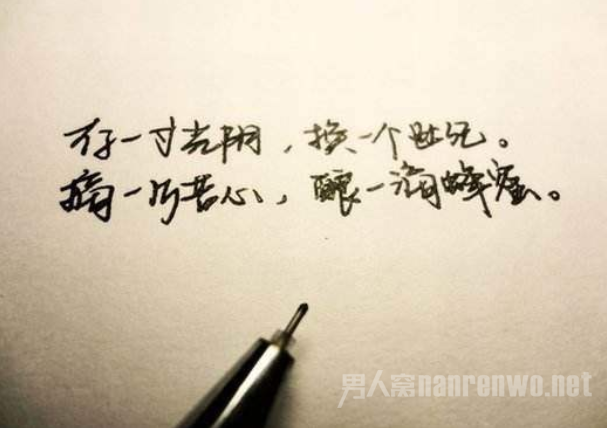 存一寸光阴，换一个世纪。
摘一片苦心，酿一滴蜂蜜。
男人窝nanrenwo.net